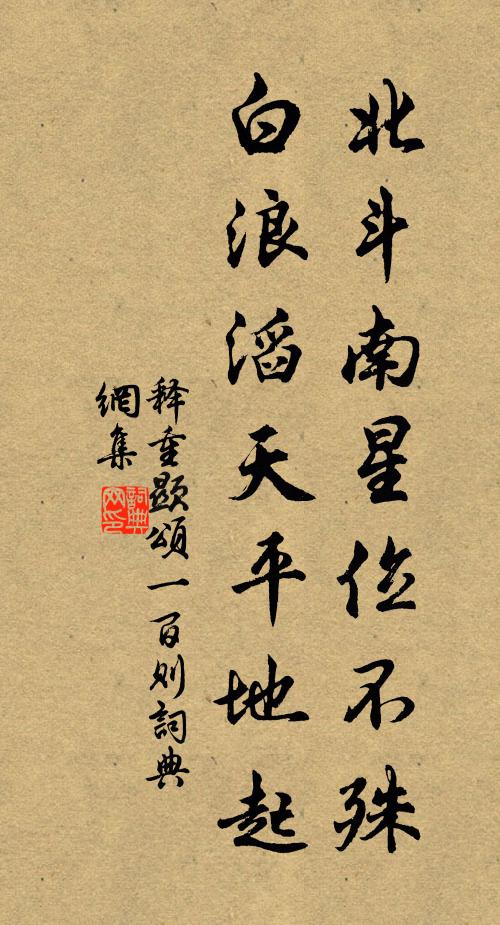 北斗南星位不殊
白浪滔天平地起
釋重顯頌一百則詞典
網集
詞典
网印